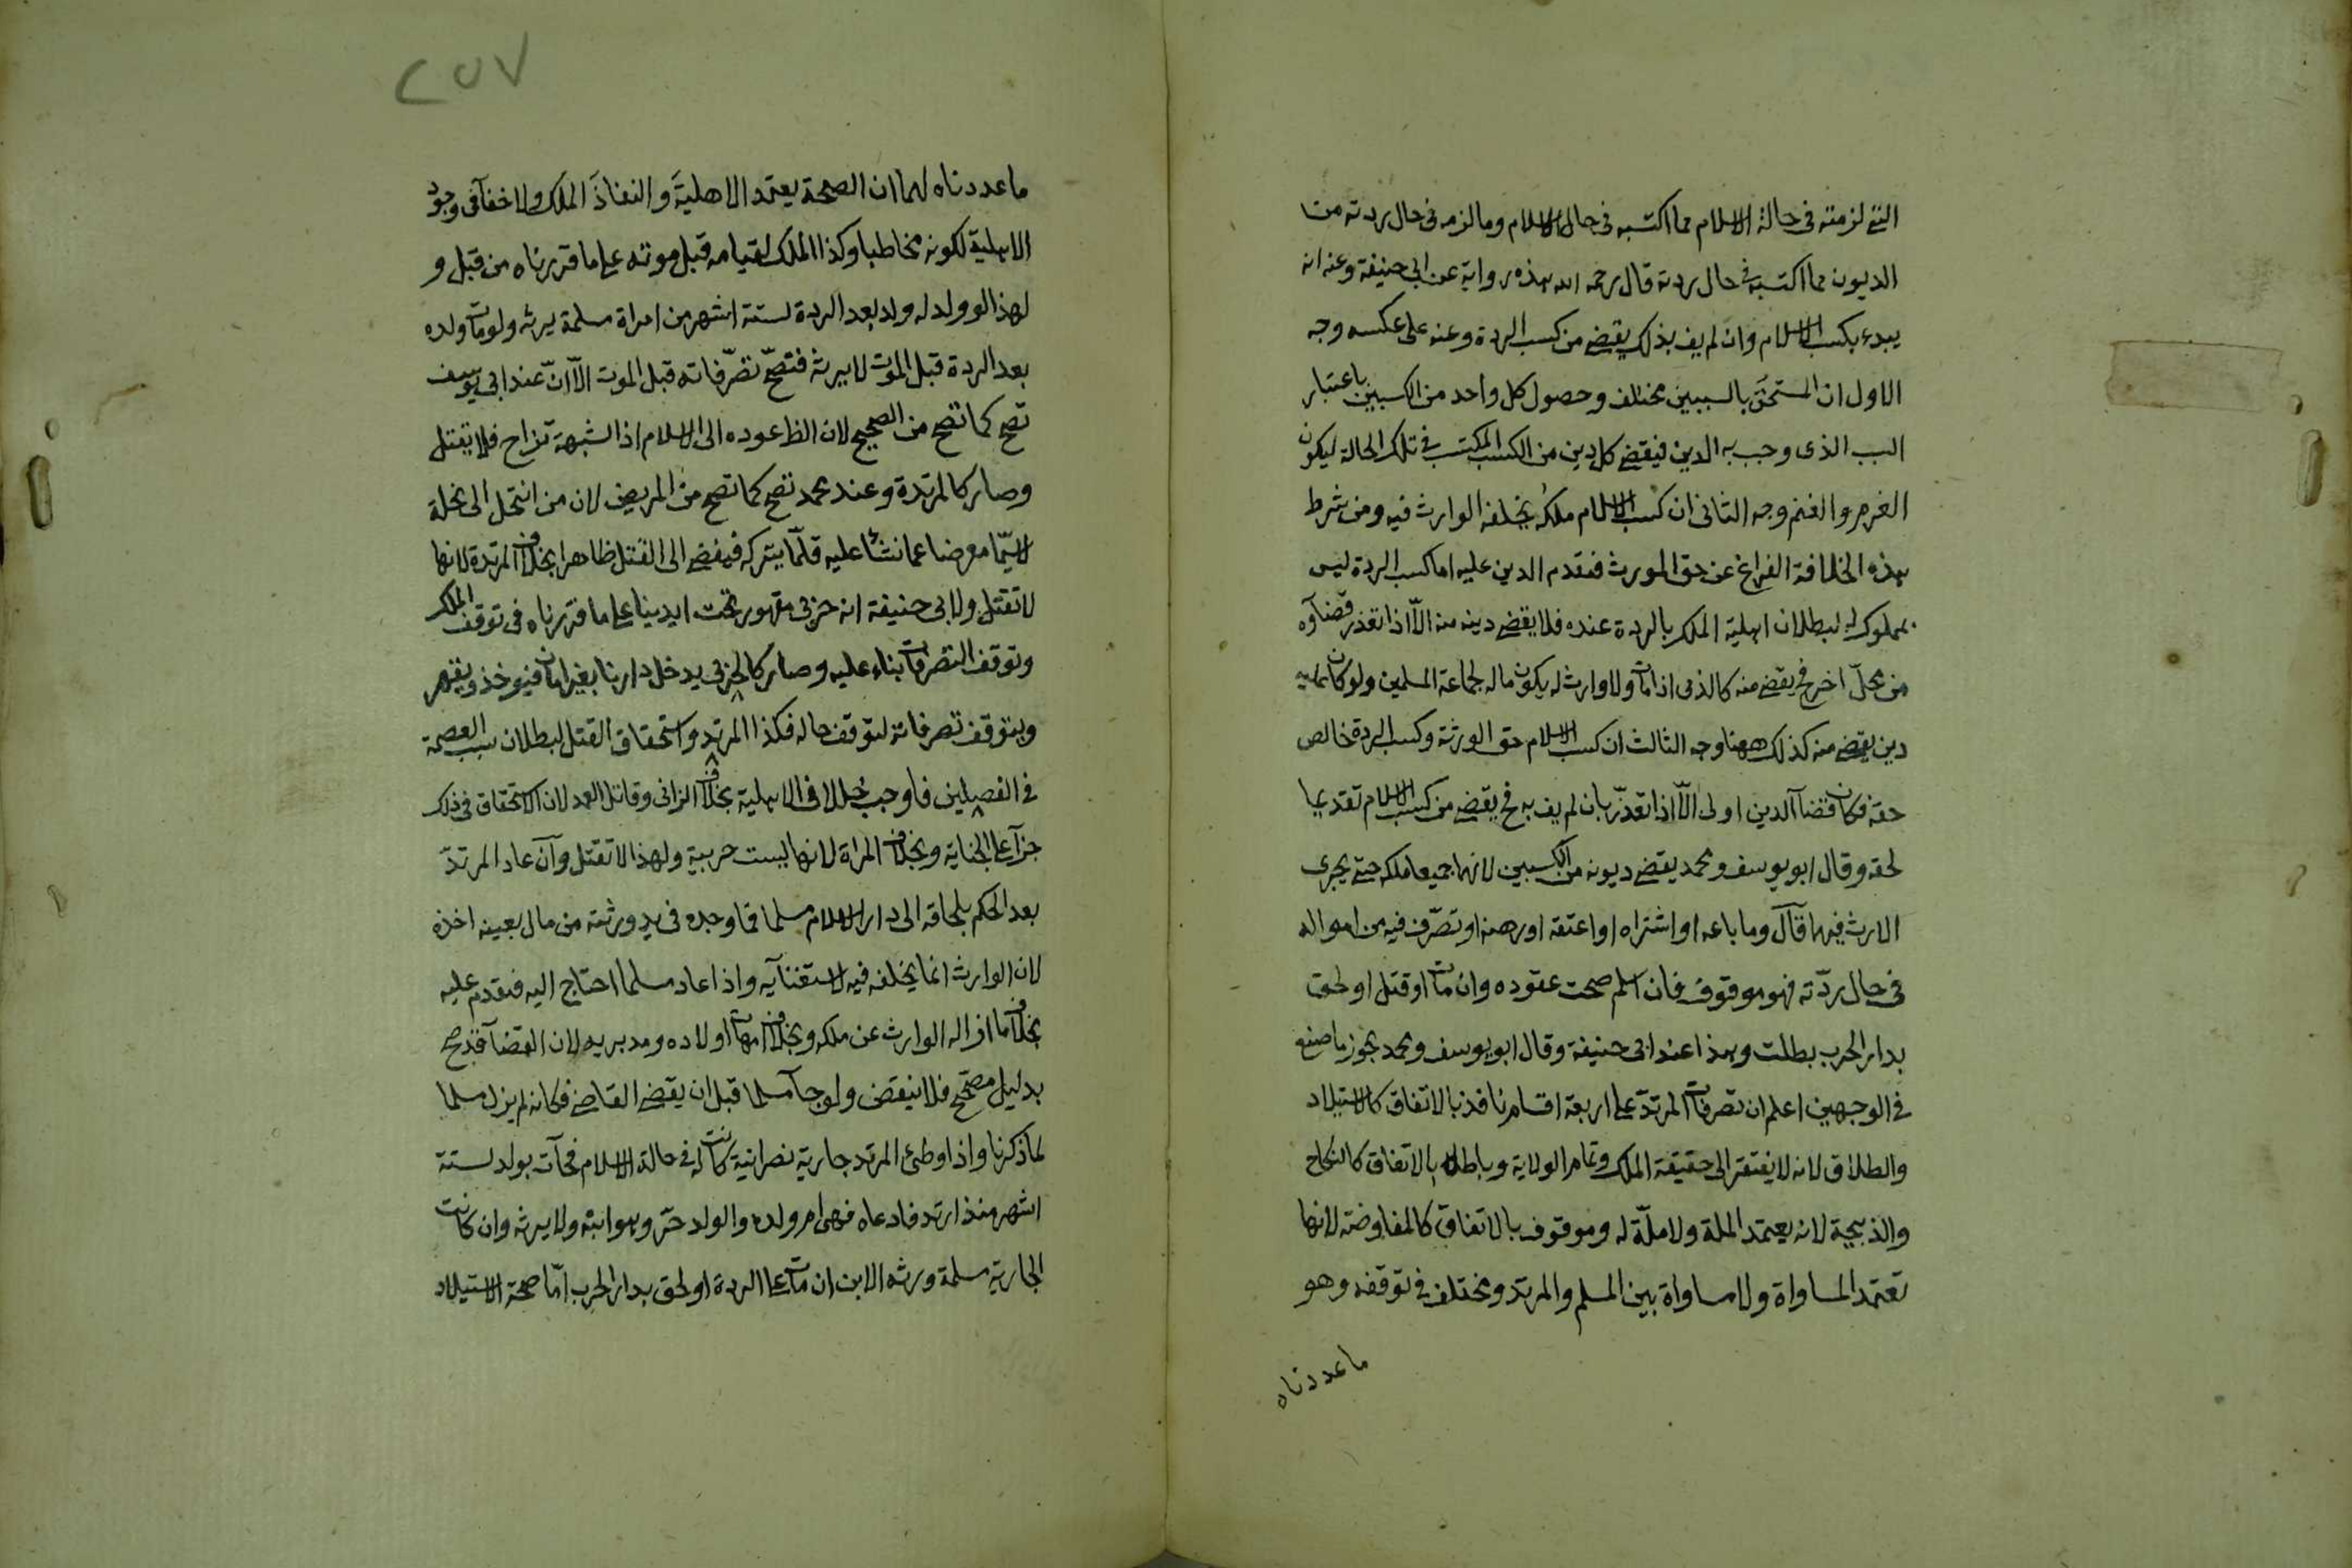 التي لزمته في حالة الاسلام مما اكتسبه في حال الاسلام وما لزمه في حال ردته من
الديون مما اكتسبه في حال ردته قال رحمه الله هذه رواية عن ابي حنيفة وعنه انه
يبدء بكسب الاسلام وان لم يف بذلك يقضي من كسب الردة وعنه على عكسه وجه
الاول ان المستحق بالسببين مختلف وحصول كل واحد من الكسبين باعتبار
السبب الذي وجب به الدين فيقضي كل دين من الكسب المكتسب في تلك الحالة ليكون
الغرم والغنم وجه الثاني ان كسب الاسلام ملكه يخلفه الوارث فيه ومن شرط
هذه الخلافة الفراغ عن حق المورث فتقدم الدين عليه اما كسب الردة ليس
بمملوك له لبطلان اهلية الملك بالردة عنده فلا يقضي دينه منه الّا اذا تعذر قضآؤه
من محلّ اخر فح يقضي منه كالذمي اذا مات ولا وارث له يكون ماله لجماعة المسلمين ولو كان عليه
دين يقضي منه كذلك ههنا وجه الثالث ان كسب الاسلام حق الورثة وكسب الردة خالص
حقه فكان قضآ الدين اولى الّا اذا تعذّر بان لم يف به فح يقضي من كسب الاسلام تقديما
لحقه وقال ابو يوسف ومحمد يقضي ديونه من الكسبين لانهما جميعا ملكه حتي يجري
الارث فيهما قآل وما باعه او اشتراه او اعتقه او رهنه او تصرّف فيه من امواله
في حال ردّته فهو موقوف فان اسلم صحت عقوده وان مات او قتل او لحق
بدار الحرب بطلت وهذا عند ابي حنيفة وقال ابو يوسف ومحمد يجوز ما صنع
في الوجهين اعلم ان تصرفات المرتدّ علي اربعة اقسام نافذ بالاتفاق كالاستيلاد
والطلاق لانه لا يفتقر الى حقيقة الملك وتمام الولاية وباطل بالاتفاق كالنكاح
والذبيحة لانه يعتمد الملة ولا ملّة له وموقوف بالاتفاق كالمفاوضة لانها
تعتمد المساواة ولا مساواة بين المسلم والمرتد ومختلف في توقفه وهو
ما عددناه
٢٥٧
ما عددناه لهما ان الصحة يعتمد الاهليةَ والنفاذَ الملك ولا خفآ في وجود
الاهلية لكونه مخاطبا وكذا الملك لقيامه قبل موته علي ما قررناه من قبل و
لهذا لو ولد له ولد بعد الردة لستة اشهر من امراة مسلمة يرثه ولو مات ولده
بعد الردة قبل الموت لا يرثه فتصحّ تصرّفاته قبل الموت الّا انّ عند ابي يوسف
تصح كما تصح من الصحيح لان الظ عوده الى الاسلام اذ الشبهة تزاح فلا يقتل
وصار كالمرتدة وعند محمد تصح كما تصح من المريض لان من انتحل الى نحلة
لاسيّما معرضا عما نشأ عليه قلّما يتركه فيفضي الى القتل ظاهرا بخلاف المرتدة لانها
لا تقتل ولابي حنيفة انه حربي مقهور تحت ايدينا علي ما قررناه في توقف الملك
وتوقف التصرفات بناء عليه وصار كالحربي يدخل دارنا بغير امان فيؤخذ ويقهر
ويتوقف تصرفاته لتوقف حاله فكذا المرتد واستحقاق القتل لبطلان سبب العصمة
في الفصلين فاوجب خللا في الاهلية بخلاف الزاني وقاتل العمد لان الاستحقاق في ذلك
جزآ علي الجناية وبخلاف المراة لانها ليست حربية ولهذا لا تقتل وآن عاد المرتدّ
بعد الحكم بلحاقه الى دار الاسلام مسلما فما وجده في يد ورثته من مال بعينه اخذه
لان الوارث انما يخلفه فيه لاستغنآيه واذا عاد مسلما احتاج اليه فتقدم عليه
بخلاف ما ازاله الوارث عن ملكه وبخلاف امهات اولاده ومدبريه لان القضآ قد صح
بدليل مصحّح فلا ينقض ولو جآ مسلما قبل ان يقضي القاضي فكانه لم يزل مسلما
لما ذكرنا واذا وطئ المرتد جارية نصرانية كانت له في حالة الاسلام فجآت بولد لستة
اشهر منذ ارتد فادعاه فهي ام ولده والولد حرّ وهو ابنه ولا يرثه وان كانت
الجارية مسلمة ورثه الابن ان مات علي الردة او لحق بدار الحرب امّا صحة الاستيلاد